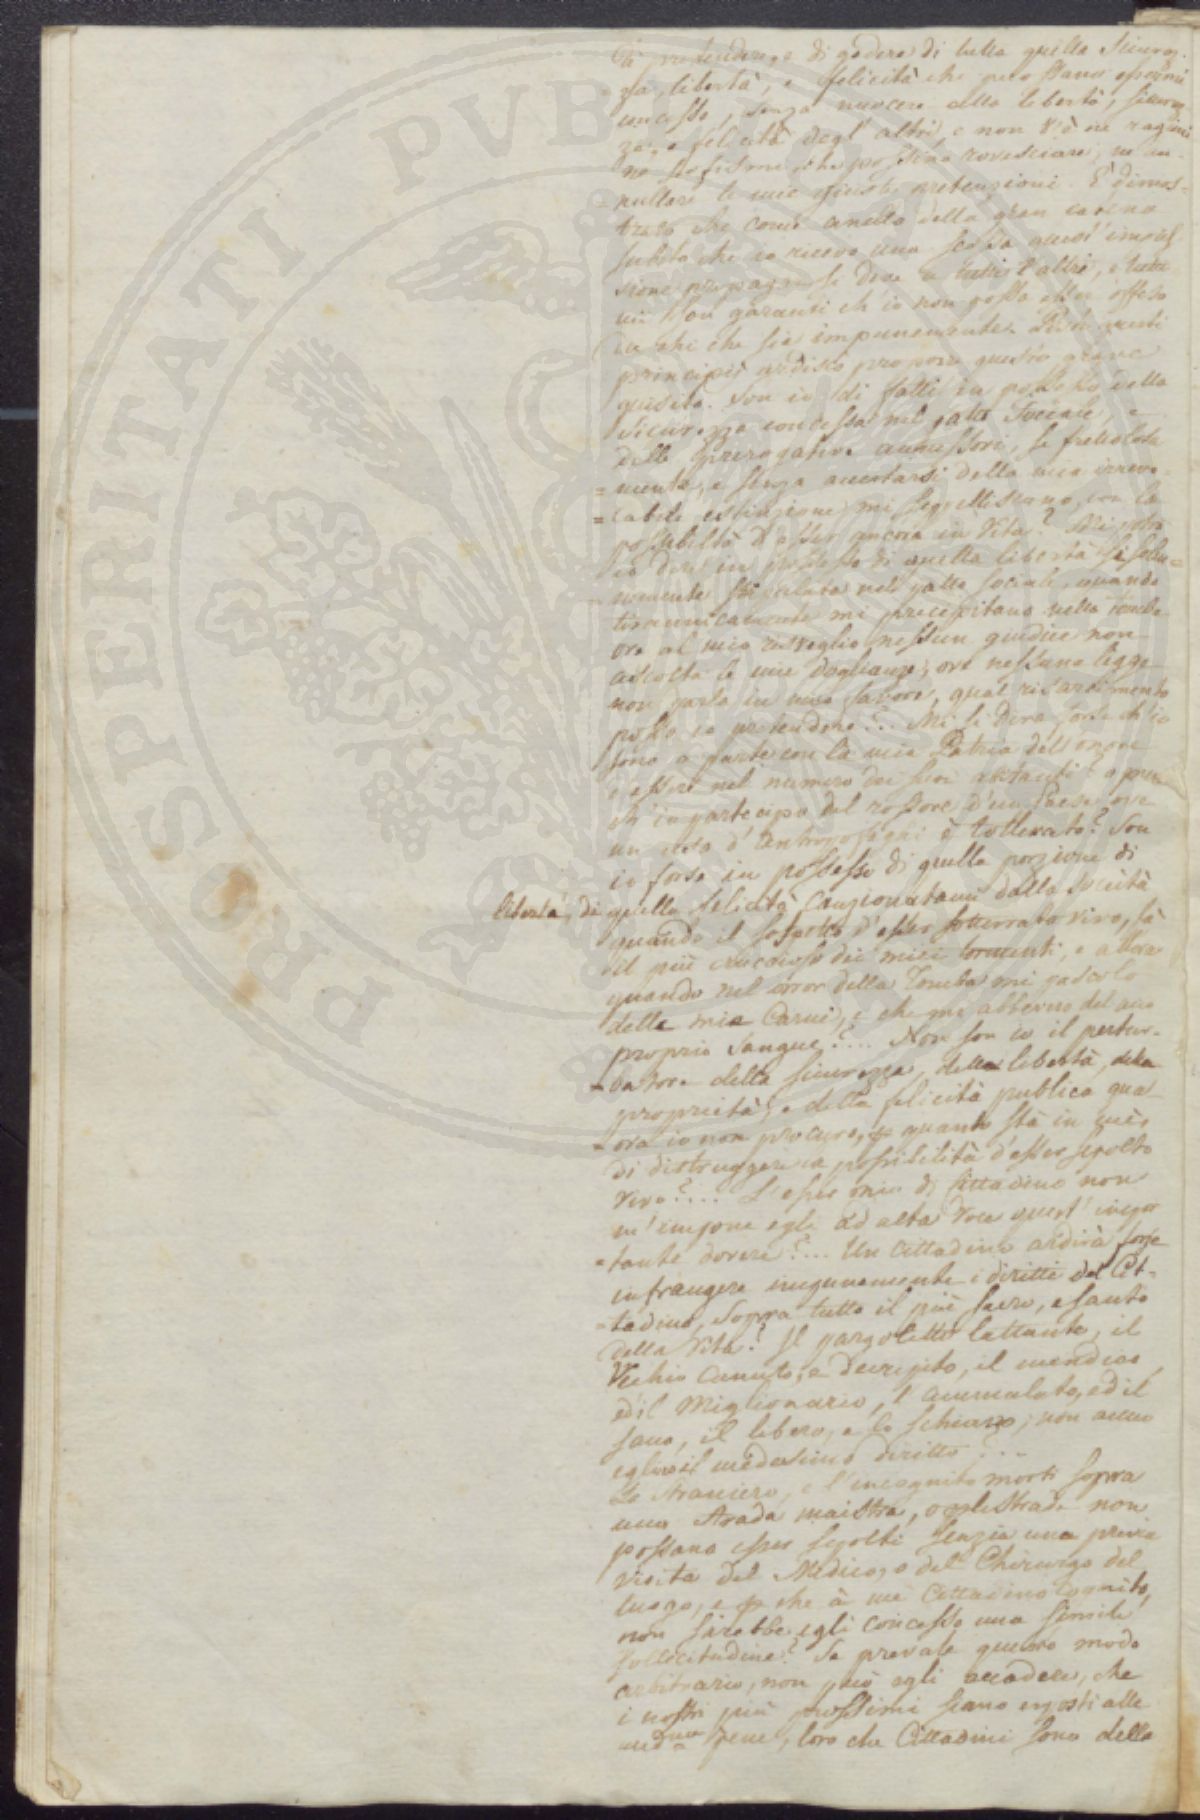 di pretendere, e di godere di tutta quella sicurez-
=za, libertà, e felicità che mi possano essermi
concesse, senza nuocere alla libertà, sicurez
za, e felicità degl' altri, e non v'è ne ragio
ne ne sofismi che possino rovesciare, ne an-
=nullare le mie giuste pretenzioni. È dimos-
trato che come anello della gran catena
subito che io ricevo una scossa quest' impul-
sione propagarsi deve a tutti l'altri, e tutti
mi son garanti ch' io non possa esser offeso
da chi che sia impunemente. Posti questi
principii ardisco proporre questo grave
quisito. Son io di fatti in possesso della
sicurezza concessa nel patto sociale, e
delle prerogative annessevi, se frettolosa
=mente, e senza accertarsi della mia irrevo-
=cabile estinzione mi seppelliscano, con la
possibiltà d'esser ancora in vita? Mi potrò
io dire in possesso di quella libertà sì solen=
=nemente stipulata nel patto sociale, quando
tirannicamente mi precepitano nella tomba
ove al mio risveglio nessun giudice non
ascolta le mie doglianze, ove nessuna legge
non parla in mio favore, qual risarcimento
posso io pretendere?... Mi si dirà forse ch'io
sono a parte con la mia Patria dell'onore
d'essere nel numero dei suoi abitanti? o pure
ch' io partecipo del rossore d'un Paese ove
un atto d'antropofagi è tollerato? Son
io forse in possesso di quella porzione di
libertà, di quella felicità cauzionatami dalla società
quando il sospetto d'esser sotterrato vivo, fà
il più crucioso dei miei tormenti, e allora
quando nel orror della Tomba mi pascolo
delle mie Carni, e che mi abbevero del mio
proprio sangue?... Non son io il pertur-
=batore della sicurezza, della libertà, della
proprietà, e della felicità publica qua
=ora io non procuro, p quanto stà in mè,
di distruggere la possibilità d'esser sepolto
vivo?.... L'esser mio di Cittadino non
m' impone egli ad alta voce quest' impor
=tante dovere?... Un Cittadino ardirà forse
infrangere impunemente i diritti del Cit-
=tadino, sopra tutto il più sacro, e santo
della vita? Il pargoletto lattante, il
Vechio canuto, e decrepito, il mendico
ed il Miglionario, l'ammalato, ed il
sano, il libero, e lo schiavo, non anno
eglino il medesimo diritto?...
Lo straniero, e l'incognito morti sopra
una strada maistra, o p le strade non
possano esser sepolti senzia una previa
visita del Medico, o del Chirurgo del
luogo, e p che à me Cittadino cognito,
non sarebbe egli concesso una simile
sollicitudine? Se prevale questo modo
arbitrario, non può egli accadere, che
i nostri più prossimi siano esposti alle
medme pene, loro che Cittadini sono della
PROSPERITATI PVBLICAE